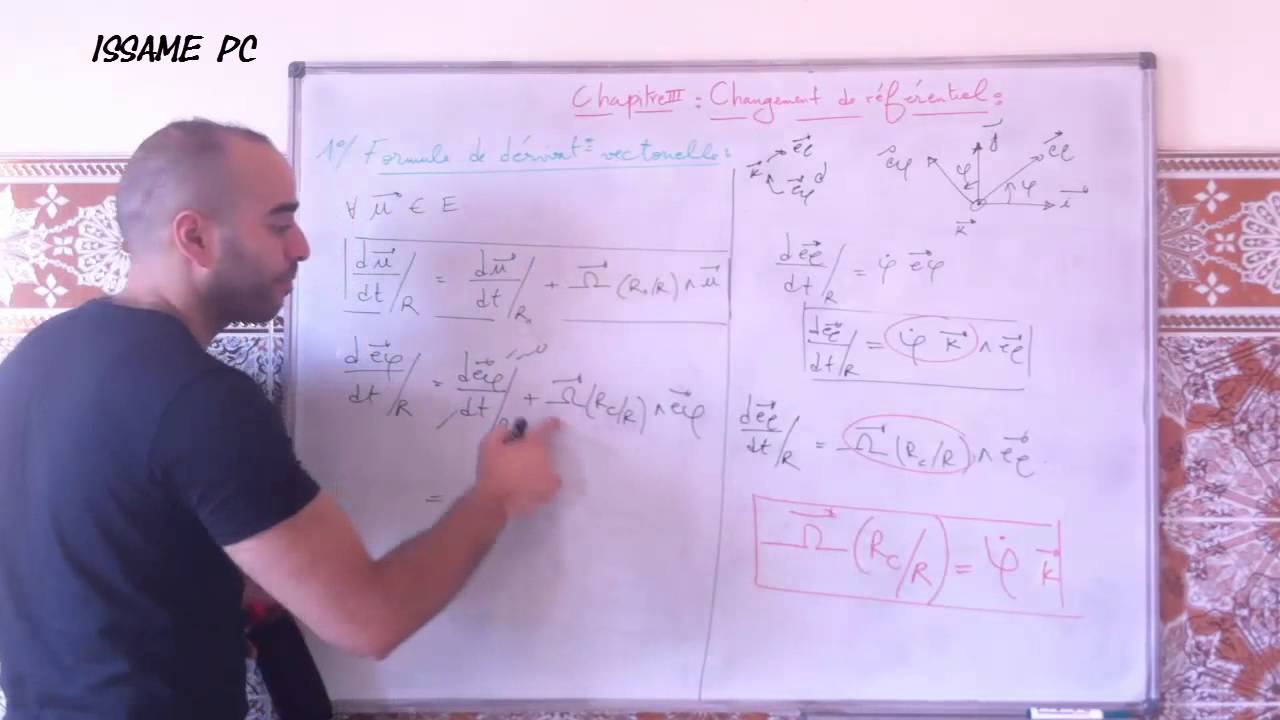 ISSAME PC
Chapitre III : Changement de référentiel :
1°/ Formule de dérivat° vectorielle :
∀ u⃗ ∈ E
du⃗/dt /R = du⃗/dt /R₁ + Ω⃗ (R₁/R) ∧ u⃗
de⃗φ/dt /R = de⃗φ/dt / + Ω⃗ (Rc/R) ∧ e⃗φ
=
e⃗ρ
k⃗
e⃗φ
e⃗φ
j⃗
e⃗ρ
φ
φ
i⃗
k⃗
de⃗ρ/dt /R = φ̇ e⃗φ
de⃗ρ/dt /R = φ̇ k⃗ ∧ e⃗ρ
de⃗ρ/dt /R = Ω⃗ (Rc/R) ∧ e⃗ρ
Ω⃗ (Rc/R) = φ̇ k⃗